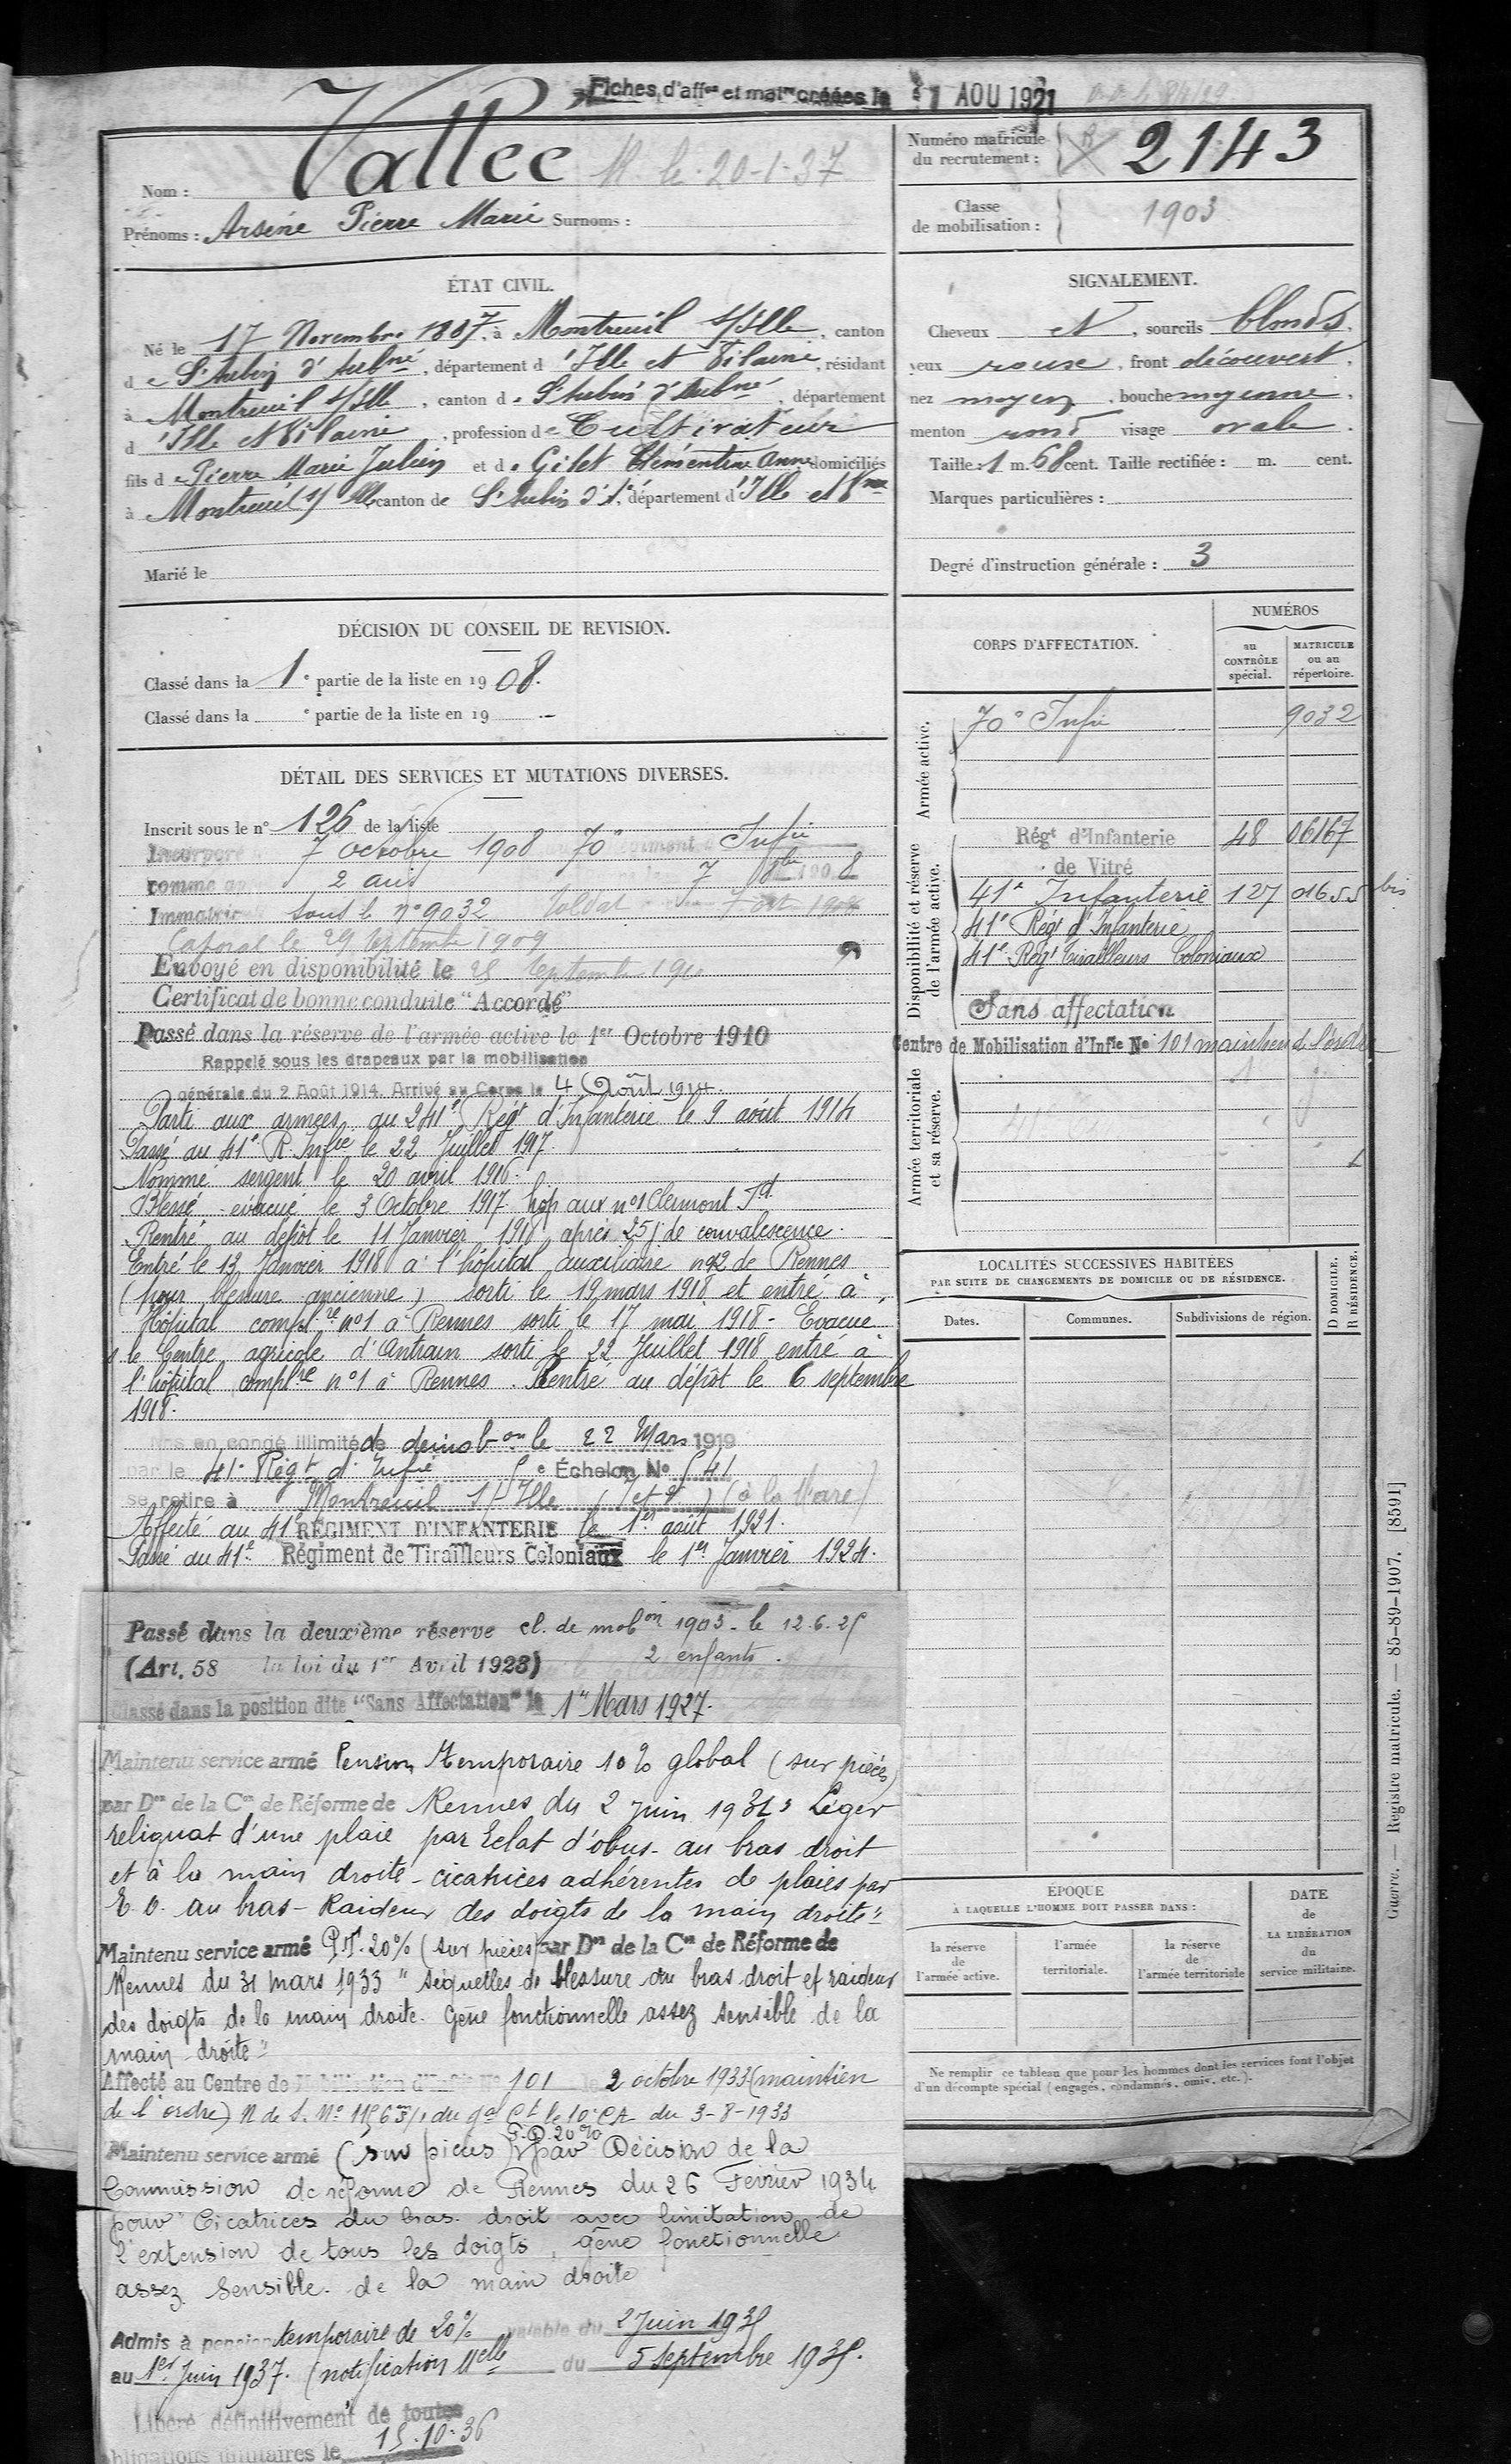 Fiches d'aff<sup>on</sup> et mat<sup>re</sup> créées le 1 AOU 1921
Nom : Vallée
Prénoms : Arsène Pierre Marie Surnoms :
Numéro matricule du recrutement : 2143
Classe de mobilisation : 1903
ÉTAT CIVIL.
Né le 17 Novembre 1887, à Montreuil s/Ille, canton
de St Aubin d'Aubné, département d'Ille et Vilaine, résidant
à Montreuil s/Ille, canton de St Aubin d'Aubné, département
d'Ille et Vilaine, profession de Cultivateur
fils de Pierre Marie Julien et de Gilet Clémentine Anne domiciliés
à Montreuil s/ Ille canton de St Aubin d'A., département d'Ille et Vne
Marié le
SIGNALEMENT.
Cheveux et, sourcils blonds,
yeux roux, front découvert,
nez moyen, bouche moyenne,
menton rond visage ovale.
Taille : 1 m. 68 cent. Taille rectifiée : m. cent.
Marques particulières :
Degré d'instruction générale : 3
DÉCISION DU CONSEIL DE REVISION.
Classé dans la 1e partie de la liste en 1908.
Classé dans la e partie de la liste en 19
DÉTAIL DES SERVICES ET MUTATIONS DIVERSES.
Inscrit sous le n° 126 de la liste
Incorporé 7 octobre 1908 70e Infie
comme 2 ans 7 8bre 1908
Immatric sous le n° 9032 soldat 7 oct 1908
Caporal le 29 septembre 1909
Envoyé en disponibilité le 25 Septembre 1910
Certificat de bonne conduite "Accordé"
Passé dans la réserve de l'armée active le 1er Octobre 1910
Rappelé sous les drapeaux par la mobilisation
générale du 2 Août 1914. Arrivé au Corps le 4 Août 1914.
Parti aux armées au 241e Régt d'Infanterie le 9 août 1914
Passé au 41e R. Infie le 22 Juillet 1917
Nommé sergent le 20 avril 1916.
Blessé évacué le 3 Octobre 1917 hôp aux n°1 Clermont Fd.
Rentré au dépôt le 11 Janvier 1918 après 25 j de convalescence.
Entré le 13 Janvier 1918 à l'hôpital auxiliaire n92 de Rennes
(pour blessure ancienne) sorti le 19 mars 1918 et entré à
Hôpital complre n°1 à Rennes sorti le 17 mai 1918 - Evacué
s le Centre agricole d'Antrain sorti le 22 Juillet 1918 entré à
l'hôpital complre n°1 à Rennes. Rentré au dépôt le 6 septembre
1918.
en congé illimité de démobon le 22 Mars 1919
par le 41e Régt d'Infie 5e Échelon No 541
se retire à Montreuil s/ Ille (I et V) (à la Mare)
Affecté au 41e RÉGIMENT D'INFANTERIE le 1er août 1921.
Passé au 41e Régiment de Tirailleurs Coloniaux le 1er Janvier 1924.
Passé dans la deuxième réserve cl. de mobon 1903 - le 12.6.25
(Art. 58 la loi du 1er Avril 1923) 2 enfants.
Classé dans la position dite "Sans Affectation" le 1er Mars 1927.
Maintenu service armé Pension temporaire 10% global (sur pièces)
par Don de la Con de Réforme de Rennes du 2 juin 1931 Léger
reliquat d'une plaie par Eclat d'obus au bras droit
et à la main droite - cicatrices adhérentes de plaies par
E. O. au bras - Raideur des doigts de la main droite"
Maintenu service armé P.T. 20% (sur pièces) par Don de la Con de Réforme de
Rennes du 31 mars 1933 "séquelles de blessure au bras droit et raideur
des doigts de la main droite. Gêne fonctionnelle assez sensible de la
main droite"
Affecté au Centre de Mobilisation d'Infie No 101 le 2 octobre 1933 (maintien
de l'ordre) N de S. No du gal Ct le 10e CA du 3-8-1933
P.D. 20%
Maintenu service armé (sur pièces) par Décision de la
Commission de réforme de Rennes du 26 Février 1934
pour "Cicatrices du bras droit avec limitation de
l'extension de tous les doigts, gêne fonctionnelle
assez sensible de la main droite
Admis à pension temporaire de 20% valable du 2 Juin 1935
au 1er Juin 1937. (notification Mlle du 5 septembre 1935.
Libéré définitivement de toutes
obligations militaires le 15.10.36
CORPS D'AFFECTATION.
NUMÉROS
au CONTRÔLE spécial.
MATRICULE ou au répertoire.
Armée active.
70e Infie 9032
Disponibilité et réserve de l'armée active.
Régt d'Infanterie 48 06167
de Vitré
41e Infanterie 127 01655 bis
41e Régt d'Infanterie
41e Régt Tirailleurs Coloniaux
Sans affectation
Centre de Mobilisation d'Infie No 101 maintien de l'ordre
Armée territoriale et sa réserve.
LOCALITÉS SUCCESSIVES HABITÉES
PAR SUITE DE CHANGEMENTS DE DOMICILE OU DE RÉSIDENCE.
Dates. Communes. Subdivisions de région. D DOMICILE. R RÉSIDENCE.
ÉPOQUE
À LAQUELLE L'HOMME DOIT PASSER DANS :
la réserve de l'armée active.
l'armée territoriale.
la réserve de l'armée territoriale
DATE de LA LIBÉRATION du service militaire.
Ne remplir ce tableau que pour les hommes dont les services font l'objet
d'un décompte spécial (engagés, condamnés, omis, etc.).
Guerre. — Registre matricule. — 85-89-1907. [8591]